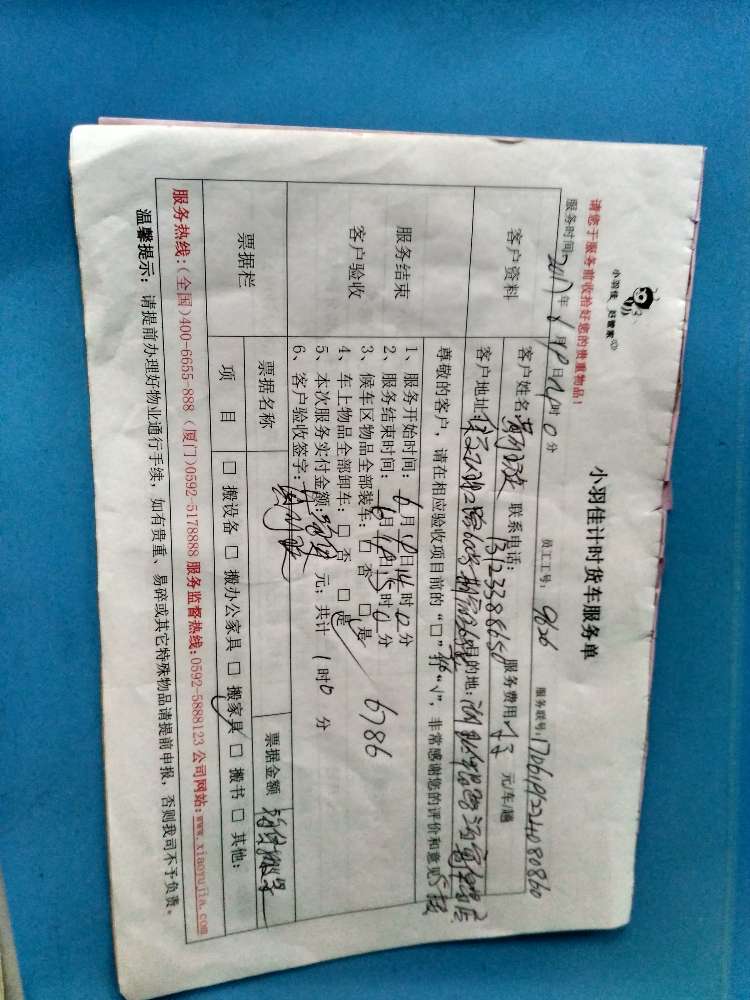 小羽佳 好管家
小羽佳计时货车服务单
请您于服务前收拾好您的贵重物品!
服务时间: 2017年6月19日14时0分 员工工号: 9826 服务联号: 1706191224080860
客户资料
客户姓名 联系电话: 13123388650 服务费用 元/车/趟
客户地址: 目的地:
服务结束
客户验收
尊敬的客户,请在相应验收项目前的“□”打“√”,非常感谢您的评价和意见
1、服务开始时间: 6月19日14时0分
2、服务结束时间: 6月19日15时0分
3、候车区物品全部装车: □ 否 □ 是
4、车上物品全部卸车: □ 否 □ 是
6786
5、本次服务实付金额: 元; 共计 1时0分
6、客户验收签字:
票据栏
票据名称 票据金额
项 目 □ 搬设备 □ 搬办公家具 □ 搬家具 □ 搬书 □ 其他:
服务热线:(全国)400-6655-888 (厦门)0592-5178888 服务监督热线:0592-5888123 公司网站:www.xiaoyujia.com
温馨提示: 请提前办理好物业通行手续, 如有贵重、易碎或其它特殊物品请提前申报, 否则我司不予负责。